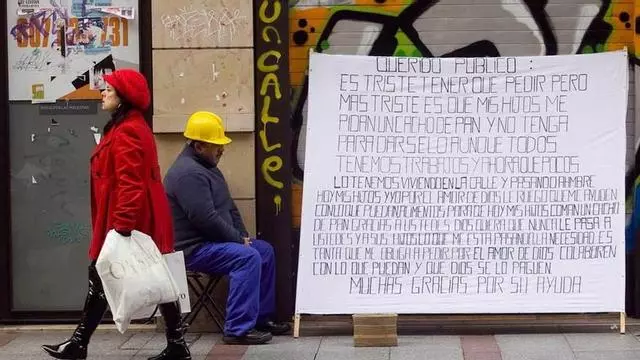 QUERIDO PUBLICO:
ES TRISTE TENER QUE PEDIR PERO
MAS TRISTE ES QUE MIS HIJOS ME
PIDAN UN CACHO DE PAN Y NO TENGA
PARA DARSELO AUNQUE TODOS
TENEMOS TRABAJOS Y AHORA QUE POCOS
LO TENEMOS VIVIENDO EN LA CALLE Y PASANDO AHMBRE
HOY MIS HIJOS Y YO POR EL AMOR DE DIOS LE RUEGO QUE ME AYUDEN
CON LO QUE PUEDAN ALIMENTOS PARA DE HOY MIS HIJOS COMAN UN CHCHO
DE PAN GRACIAS A USTEDES DIOS QUIERA QUE NUNCA LE PASE A
USTEDES Y A SUS HIJOS LO QUE ME ESTA PASANDO LA NECESIDAD ES
TANTA QUE ME OBLIGA A PEDIR POR EL AMOR DE DIOS COLABOREN
CON LO QUE PUEDAN Y QUE DIOS SE LO PAGUEN
MUCHAS GRACIAS POR SU AYUDA